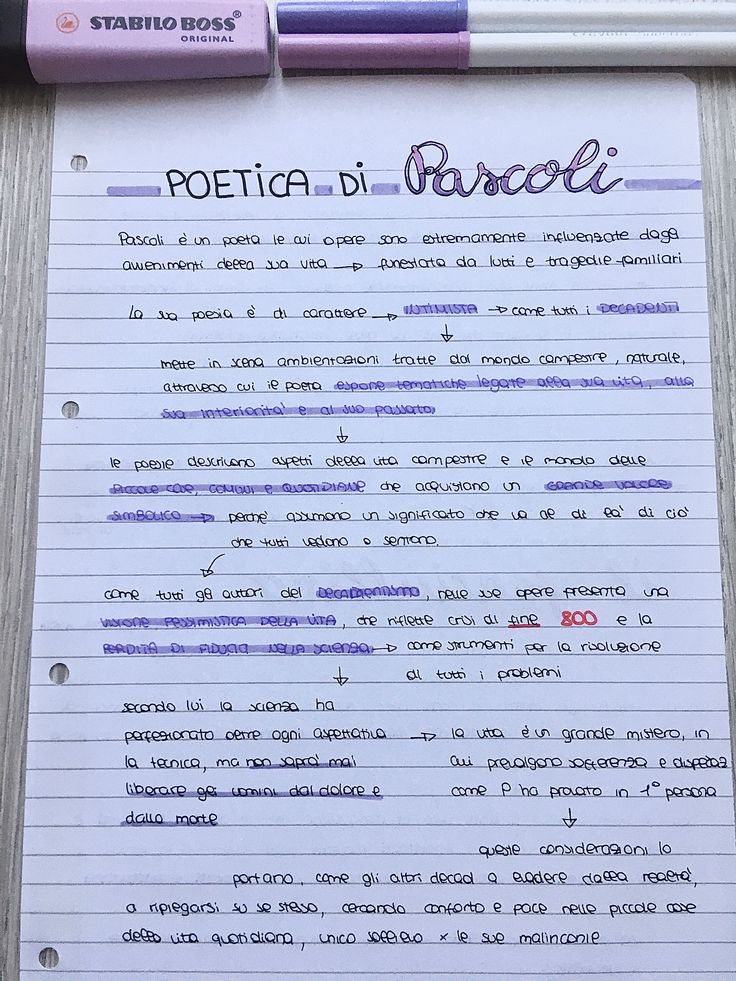 STABILO BOSS®
ORIGINAL
POETICA DI Pascoli
Pascoli è un poeta le cui opere sono estremamente influenzate dagli
avvenimenti della sua vita → funestata da lutti e tragedie familiari
La sua poesia è di carattere → INTIMISTA → come tutti i DECADENTI
↓
mette in scena ambientazioni tratte dal mondo campestre, naturale,
attraverso cui il poeta espone tematiche legate alla sua vita, alla
sua interiorità e al suo passato,
↓
le poesie descrivono aspetti della vita campestre e il mondo delle
PICCOLE COSE, COMUNI E QUOTIDIANE che acquistano un GRANDE VALORE
SIMBOLICO → perché assumono un significato che va al di là di ciò
che tutti vedono o sentono.
come tutti gli autori del DECADENTISMO, nelle sue opere presenta una
VISIONE PESSIMISTICA DELLA VITA, che riflette crisi di fine 800 e la
PERDITA DI FIDUCIA NELLA SCIENZA → come strumenti per la risoluzione
di tutti i problemi
↓
secondo lui la scienza ha
perfezionato oltre ogni aspettativa → la vita è un grande mistero, in
la tecnica, ma non saprà mai cui prevalgono sofferenza e
liberare gli uomini dal dolore e come P ha provato in 1° persona
dalla morte
↓
queste considerazioni lo
portano, come gli altri decad a evadere dalla realtà,
a ripiegarsi su se stesso, cercando conforto e pace nelle piccole cose
della vita quotidiana, unico sollievo x le sue malinconie